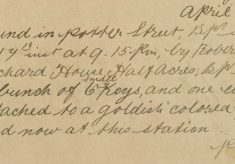 April
und in Potter Street, Bp
19th inst at 9.15 Pm, by Rober
chard House, Half Acres, Bp
small
bunch of 6 Keys, and one
tached to a goldish colored
d now at this station